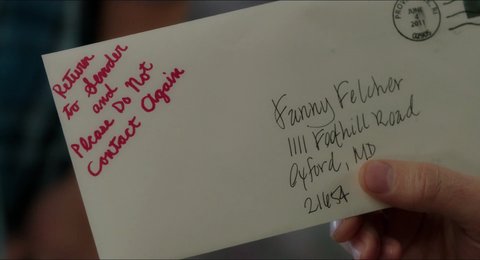 Return
to Sender
and
Please Do Not
Contact Again
JUNE
2011
Fanny Felcher
1111 Foothill Road
Oxford, MD
21654